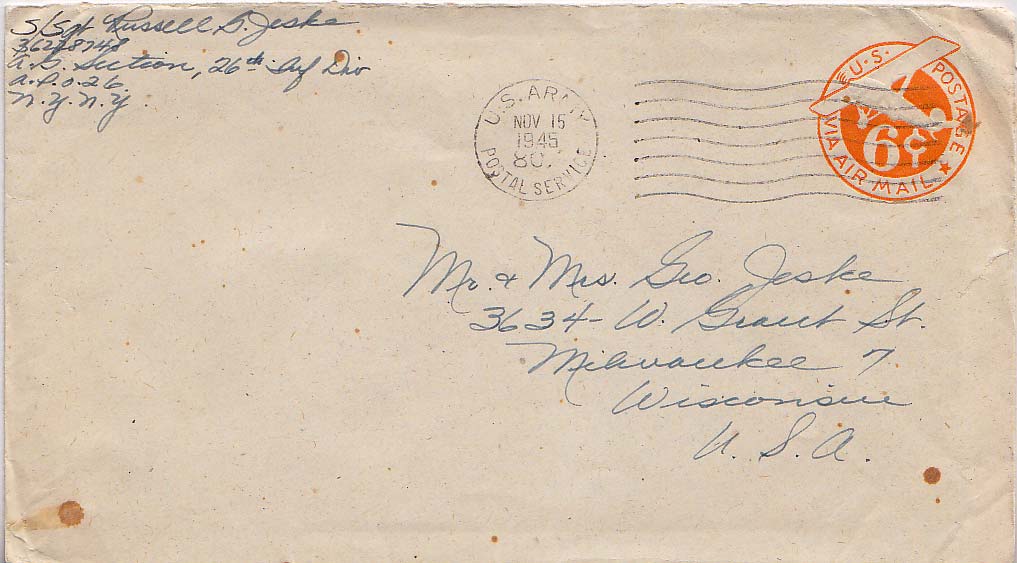 S/Sgt Russell G. Jeske
36228748
A.G. Section, 26th Inf Div
A.P.O. 26
N.Y. N.Y.
U.S. ARMY
NOV 15
1945
POSTAL SERVICE
U.S. POSTAGE
6¢
VIA AIR MAIL
Mr. & Mrs. Geo. Jeske
3634 - W. Grant St.
Milwaukee 7
Wisconsin
U. S. A.